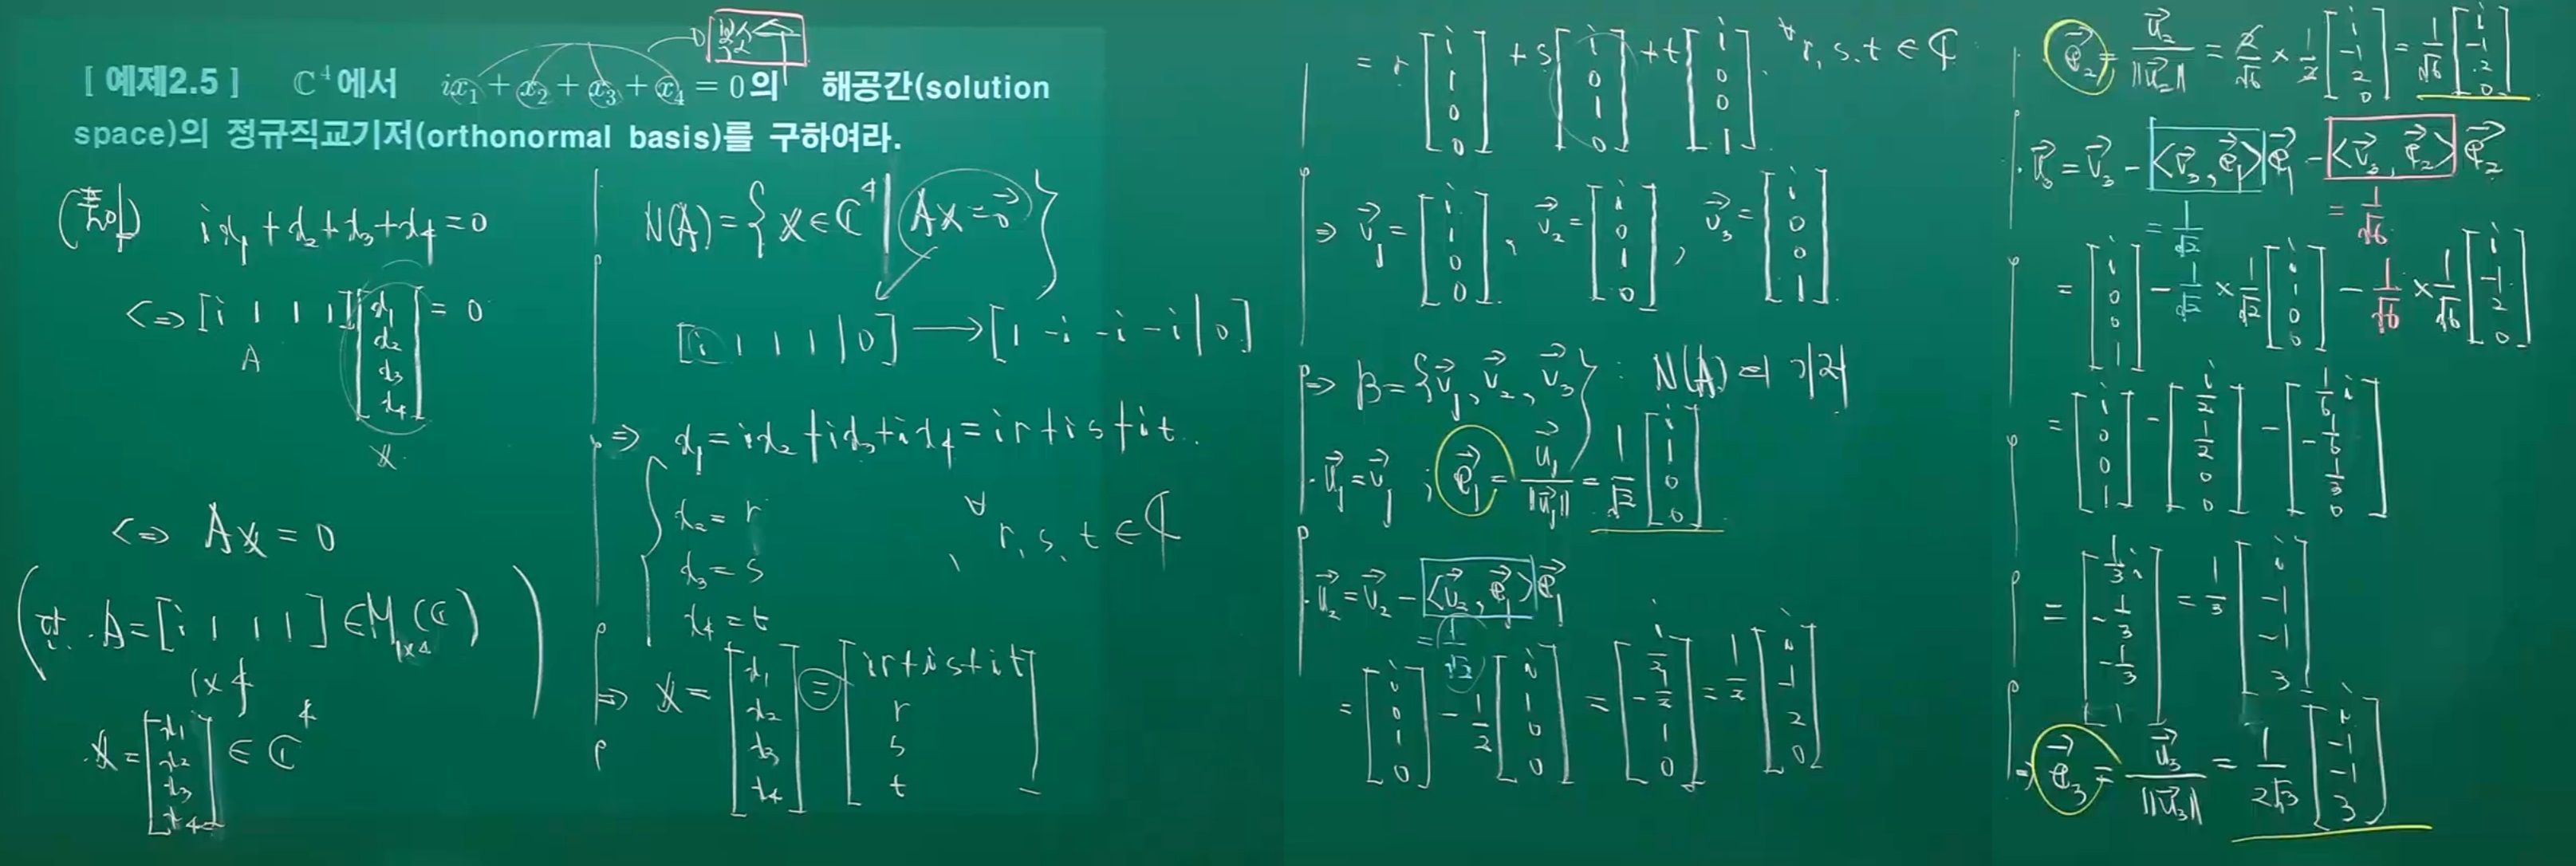 복소수
[ 예제2.5 ] ℂ⁴에서 ix₁ + x₂ + x₃ + x₄ = 0의 해공간(solution
space)의 정규직교기저(orthonormal basis)를 구하여라.
(풀이) ix₁ + x₂ + x₃ + x₄ = 0
<=> [i 1 1 1] [x₁ x₂ x₃ x₄] = 0
A
x
<=> Ax = 0
(단, A = [i 1 1 1] ∈ M₁ₓ₄(ℂ)
1×4
x = [x₁ x₂ x₃ x₄] ∈ ℂ⁴
N(A) = { x ∈ ℂ⁴ | Ax = 0⃗ }
[i 1 1 1 | 0] → [1 -i -i -i | 0]
=> x₁ = ix₂ + ix₃ + ix₄ = ir + is + it
x₂ = r
x₃ = s , ∀r, s, t ∈ ℂ
x₄ = t
=> x = [x₁ x₂ x₃ x₄] = [ir+is+it r s t]
= r[i 1 0 0] + s[i 0 1 0] + t[i 0 0 1], ∀r, s, t ∈ ℂ
=> v⃗₁ = [i 1 0 0], v⃗₂ = [i 0 1 0], v⃗₃ = [i 0 0 1]
=> B = {v⃗₁, v⃗₂, v⃗₃} : N(A)의 기저
· u⃗₁ = v⃗₁ ; e⃗₁ = u⃗₁/||u⃗₁|| = 1/√2 [i 1 0 0]
· u⃗₂ = v⃗₂ - <v⃗₂, e⃗₁> e⃗₁
= 1/√2
= [i 0 1 0] - 1/2 [i 1 0 0] = [i/2 -1/2 1 0] = 1/2 [i -1 2 0]
e⃗₂ = u⃗₂/||u⃗₂|| = 2/√6 × 1/2 [i -1 2 0] = 1/√6 [i -1 2 0]
· u⃗₃ = v⃗₃ - <v⃗₃, e⃗₁> e⃗₁ - <v⃗₃, e⃗₂> e⃗₂
= 1/√2 = 1/√6
= [i 0 0 1] - 1/√2 × 1/√2 [i 1 0 0] - 1/√6 × 1/√6 [i -1 2 0]
= [i 0 0 1] - [i/2 1/2 0 0] - [1/6 i -1/6 1/3 0]
= [1/3 i -1/3 -1/3 1] = 1/3 [i -1 -1 3]
=> e⃗₃ = u⃗₃/||u⃗₃|| = 1/2√3 [i -1 -1 3]